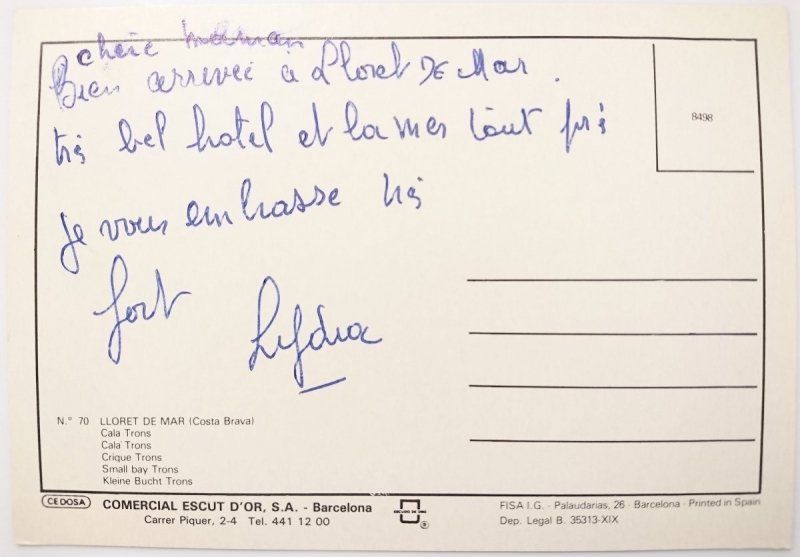 cheie maman
Bien arrivée à Lloret DE Mar.
très bel hotel et la mer tout près
Je vous embrasse très
fort Lydia
8498
N.° 70 LLORET DE MAR (Costa Brava)
Cala Trons
Cala Trons
Crique Trons
Small bay Trons
Kleine Bucht Trons
CEDOSA
COMERCIAL ESCUT D'OR, S.A. - Barcelona
Carrer Piquer, 2-4 Tel. 441 12 00
ESCUDO DE ORO
®
FISA I.G. - Palaudarias, 26 - Barcelona - Printed in Spain
Dep. Legal B. 35313-XIX